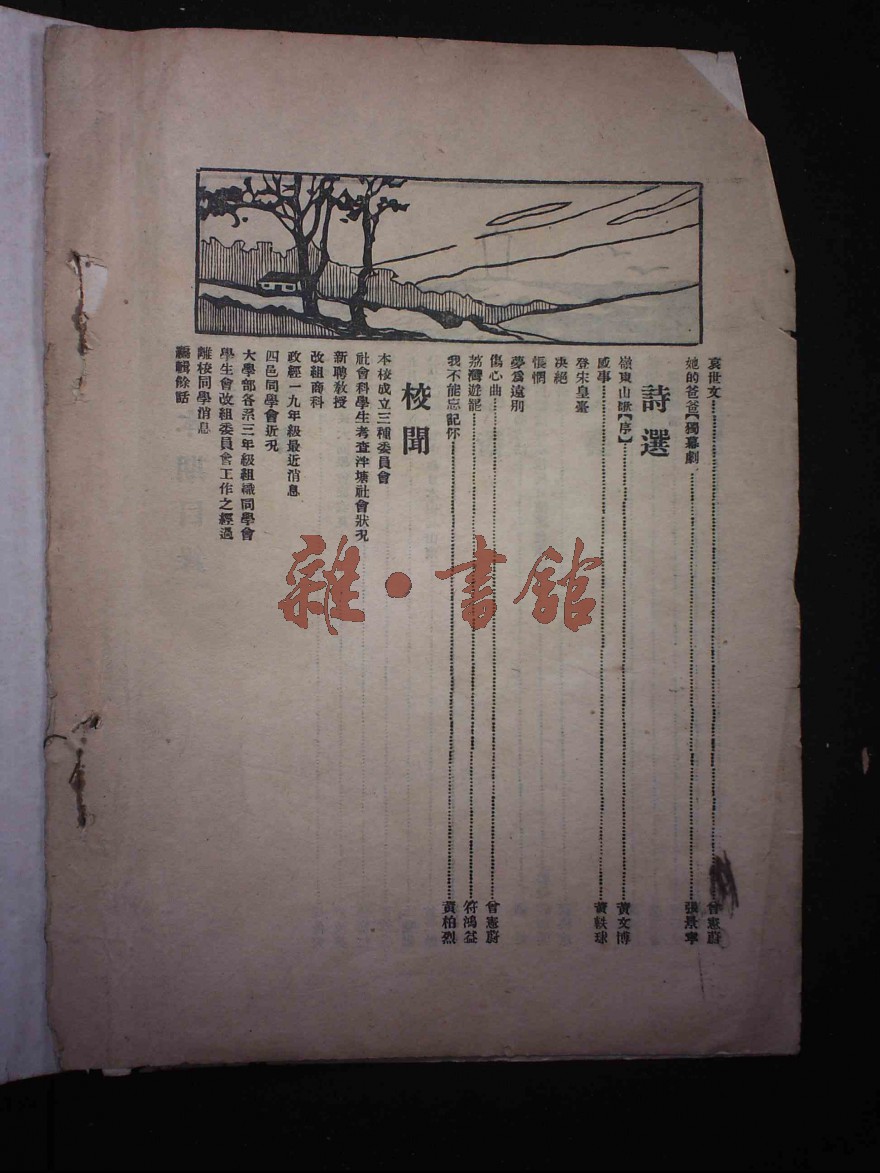 哀世文……曾憲蔚
她的爸爸【獨幕劇】……張景寧
詩選
嶺東山歌【序】……黃文博
感事……黃軼球
登宋皇臺
决絕
悵惘
夢爲遠別
傷心曲……曾憲蔚
荔灣遊罷……符鴻益
我不能忘記你……黃柏烈
校聞
本校成立三種委員會
社會科學生考查泮塘社會狀况
新聘敎授
改組商科
政經一九年級最近消息
四邑同學會近况
大學部各系三年級組織同學會
學生會改組委員會工作之經過
離校同學消息
編輯餘話
雜·書館